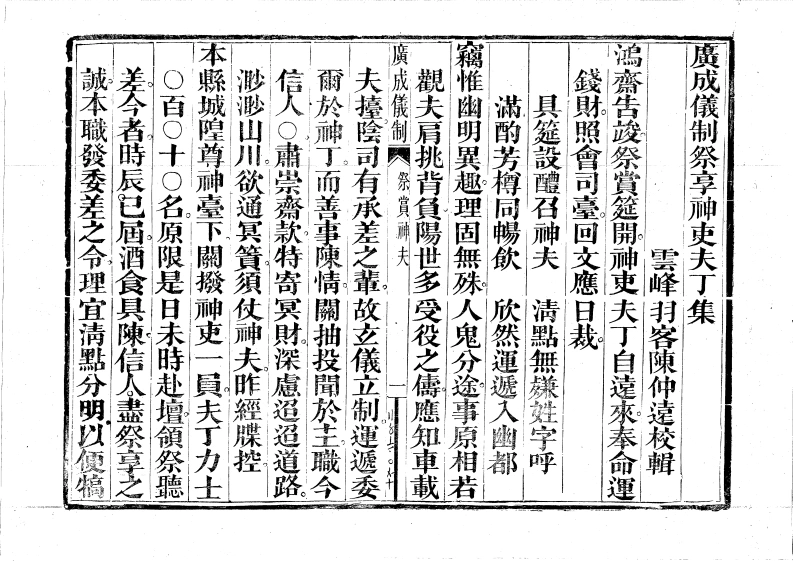 廣成儀制祭享神吏夫丁集
雲峰羽客陳仲遠校輯
鴻齋告竣祭賞筵開神吏夫丁自遠來奉命運
錢財照會司臺回文應日裁
具筵設醴召神夫　清點無嫌姓字呼
滿酌芳樽同暢飲　欣然運遞入幽都
竊惟幽明異趣理固無殊人鬼分途事原相若
觀夫肩挑背負陽世多受役之儔應知車載
廣成儀制　祭賞神夫　一
夫擡陰司有承差之輩故玄儀立制運遞委
爾於神丁而善事陳情關抽投聞於主職今
信人○肅崇齋款特寄冥財深慮迢迢道路
渺渺山川欲通冥簣須仗神夫昨經牒控
本縣城隍尊神臺下關撥神吏一員夫丁力士
○百○十○名原限是日未時赴壇領祭聽
差今者時辰已屆酒食具陳信人盡祭享之
誠本職發委差之令理宜清點分明以便犒